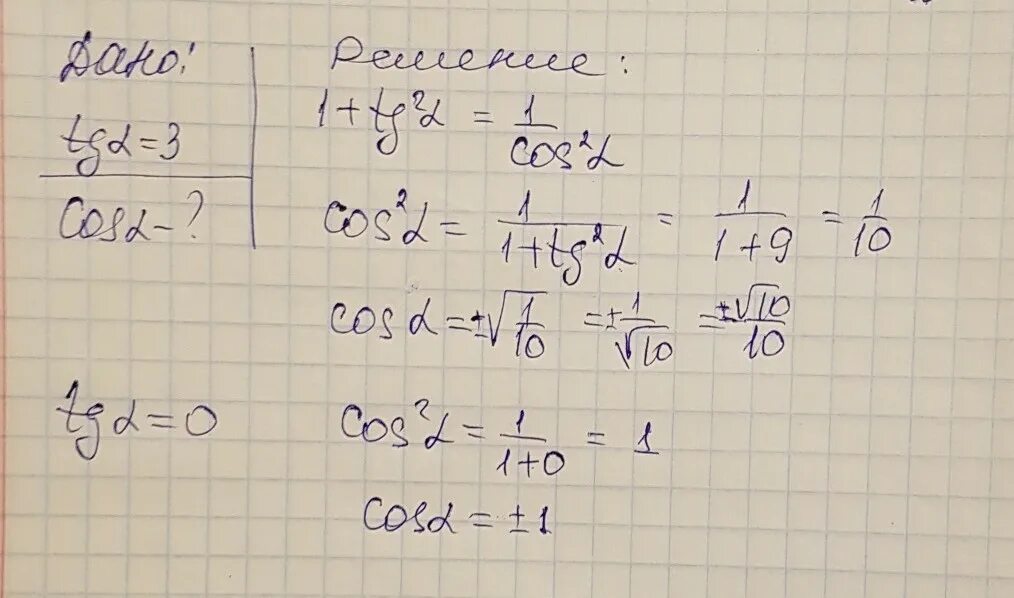 Дано:
tgα=3
Cosα-?
Решение:
1+tg²α = 1/cos²α
cos²α = 1/(1+tg²α) = 1/(1+9) = 1/10
cosα=±√(1/10) =±1/√10 =±√10/10
tgα=0
cos²α = 1/(1+0) = 1
cosα=±1